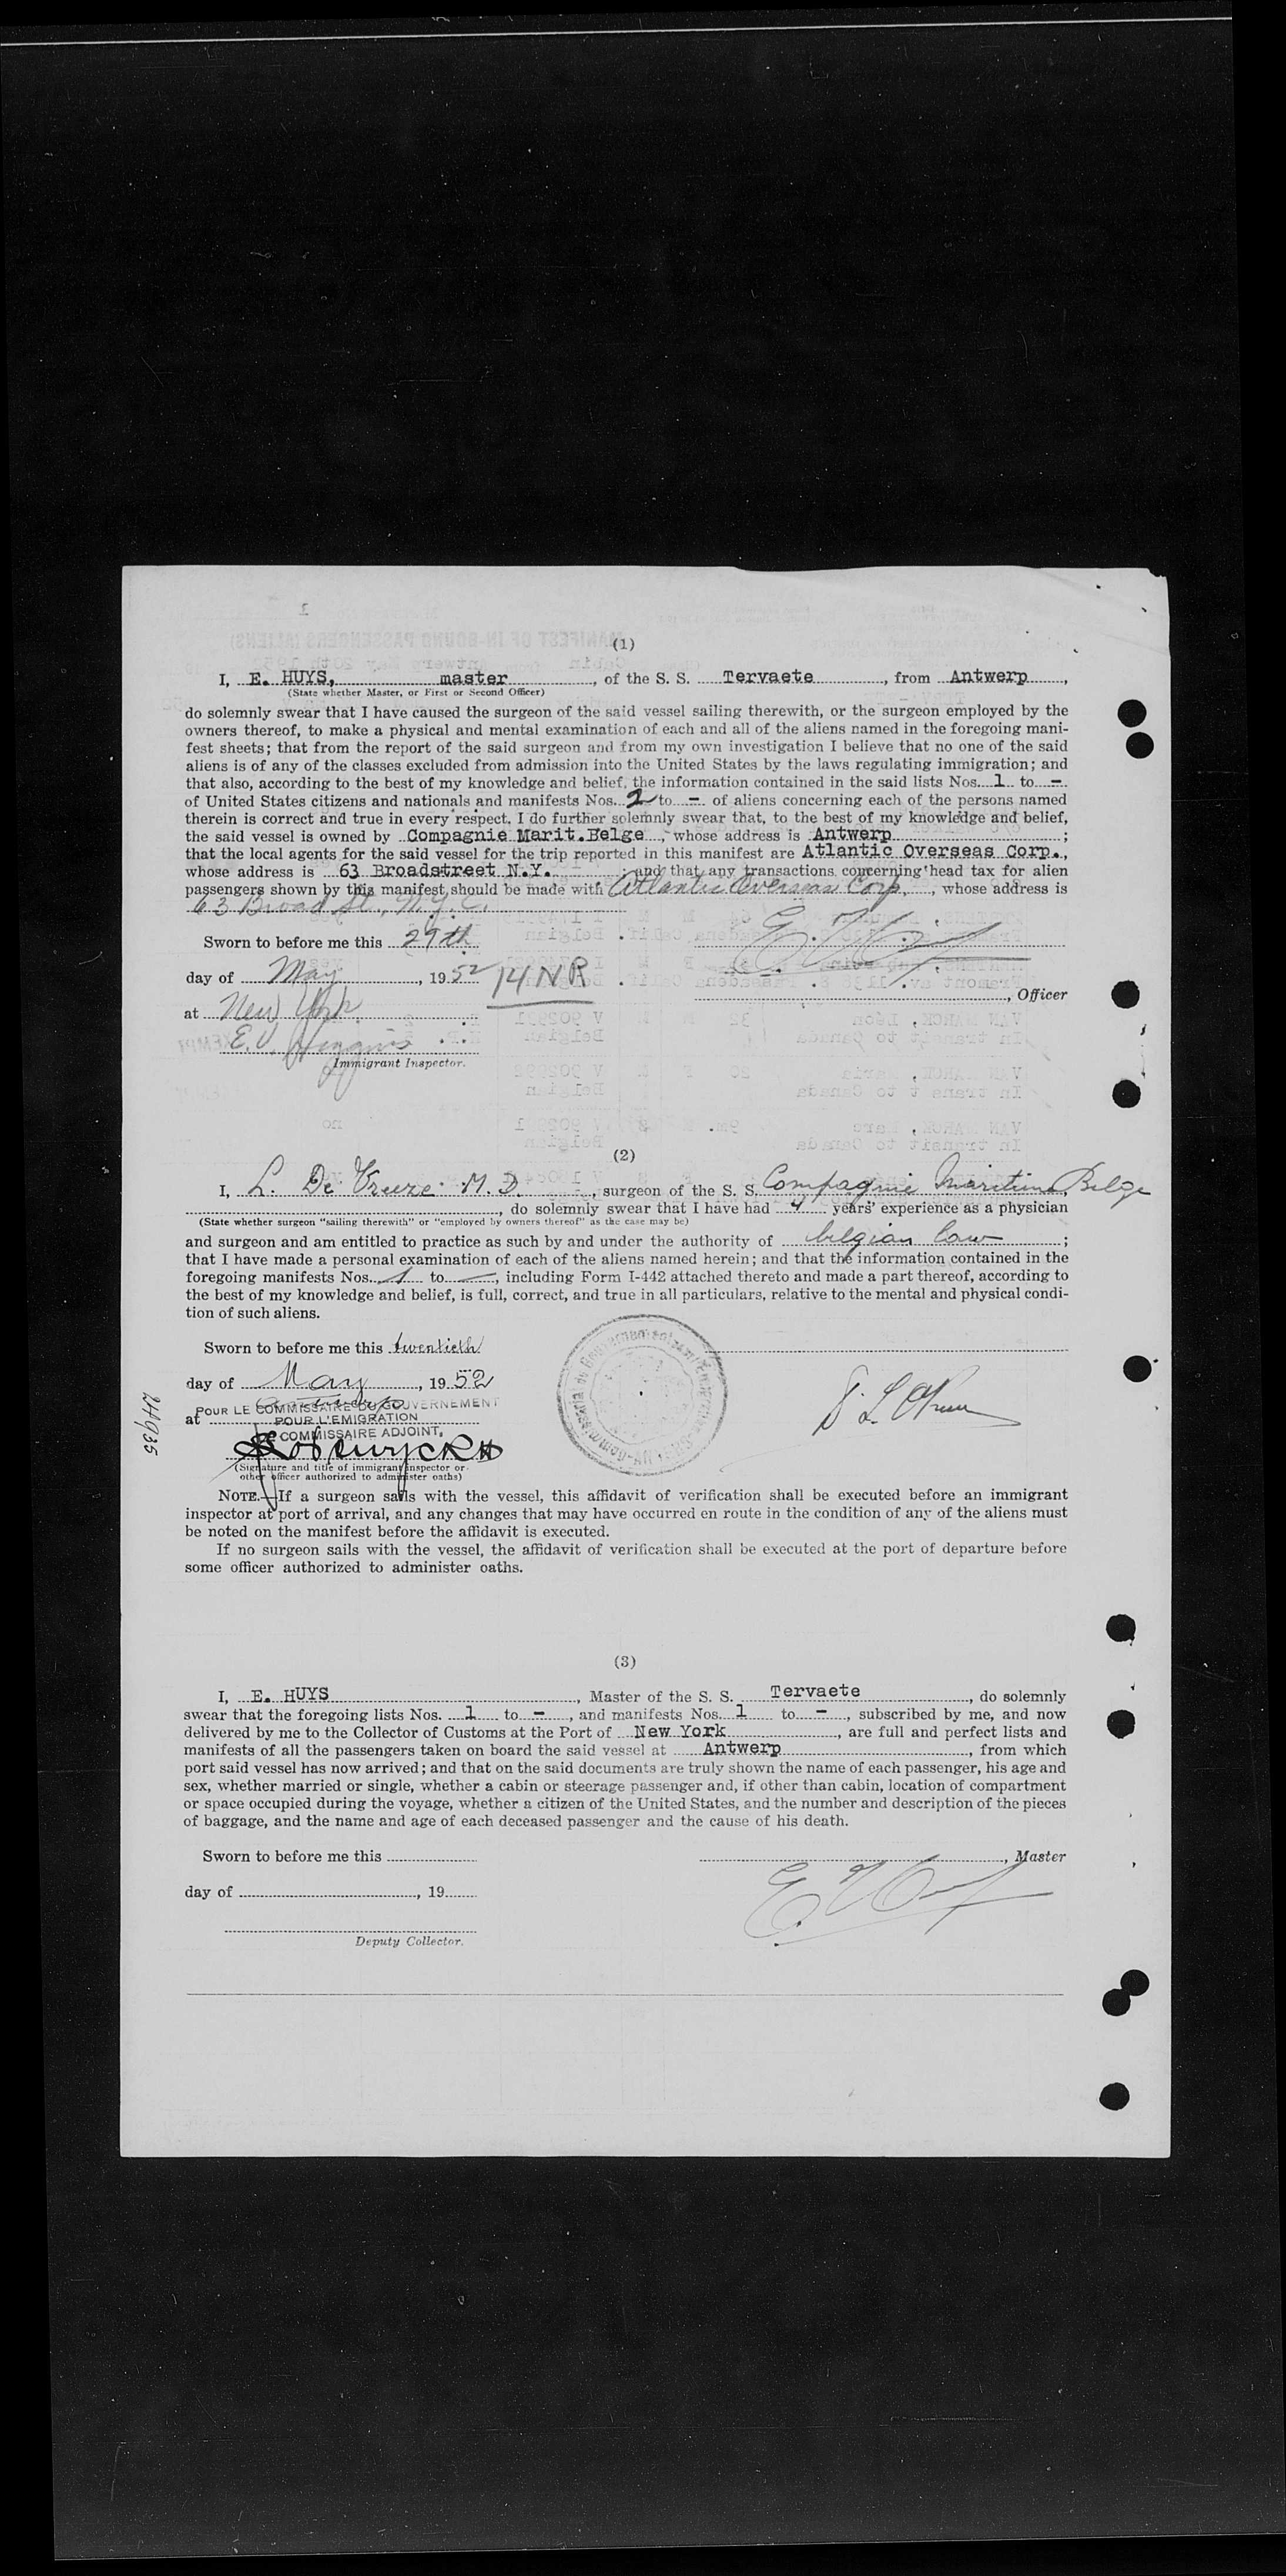 (1)
I, E. HUYS, master, of the S. S. Tervaete, from Antwerp,
(State whether Master, or First or Second Officer)
do solemnly swear that I have caused the surgeon of the said vessel sailing therewith, or the surgeon employed by the
owners thereof, to make a physical and mental examination of each and all of the aliens named in the foregoing mani-
fest sheets; that from the report of the said surgeon and from my own investigation I believe that no one of the said
aliens is of any of the classes excluded from admission into the United States by the laws regulating immigration; and
that also, according to the best of my knowledge and belief, the information contained in the said lists Nos. 1 to -
of United States citizens and nationals and manifests Nos. 2 to - of aliens concerning each of the persons named
therein is correct and true in every respect. I do further solemnly swear that, to the best of my knowledge and belief,
the said vessel is owned by Compagnie Marit.Belge, whose address is Antwerp;
that the local agents for the said vessel for the trip reported in this manifest are Atlantic Overseas Corp.,
whose address is 63 Broadstreet N.Y. ; and that any transactions concerning head tax for alien
passengers shown by this manifest should be made with Atlantic Overseas Corp., whose address is
63 Broad St., N.Y.C.
Sworn to before me this 29th
day of May, 1952 14 NR
, Officer
at New York
E.V. Higgins
Immigrant Inspector.
(2)
I, L. De M. D., surgeon of the S. S. Compagnie Maritime Belge
, do solemnly swear that I have had 4 years' experience as a physician
(State whether surgeon "sailing therewith" or "employed by owners thereof" as the case may be)
and surgeon and am entitled to practice as such by and under the authority of belgian law;
that I have made a personal examination of each of the aliens named herein; and that the information contained in the
foregoing manifests Nos. 1 to —, including Form I-442 attached thereto and made a part thereof, according to
the best of my knowledge and belief, is full, correct, and true in all particulars, relative to the mental and physical condi-
tion of such aliens.
Sworn to before me this twentieth
day of May, 1952
POUR LE COMMISSAIRE DU GOUVERNEMENT
at
POUR L'EMIGRATION
LE COMMISSAIRE ADJOINT,
(Signature and title of immigrant inspector or
other officer authorized to administer oaths)
NOTE.—If a surgeon sails with the vessel, this affidavit of verification shall be executed before an immigrant
inspector at port of arrival, and any changes that may have occurred en route in the condition of any of the aliens must
be noted on the manifest before the affidavit is executed.
If no surgeon sails with the vessel, the affidavit of verification shall be executed at the port of departure before
some officer authorized to administer oaths.
(3)
I, E. HUYS, Master of the S. S. Tervaete, do solemnly
swear that the foregoing lists Nos. 1 to -, and manifests Nos. 1 to -, subscribed by me, and now
delivered by me to the Collector of Customs at the Port of New York, are full and perfect lists and
manifests of all the passengers taken on board the said vessel at Antwerp, from which
port said vessel has now arrived; and that on the said documents are truly shown the name of each passenger, his age and
sex, whether married or single, whether a cabin or steerage passenger and, if other than cabin, location of compartment
or space occupied during the voyage, whether a citizen of the United States, and the number and description of the pieces
of baggage, and the name and age of each deceased passenger and the cause of his death.
Sworn to before me this
, Master
day of , 19
Deputy Collector.